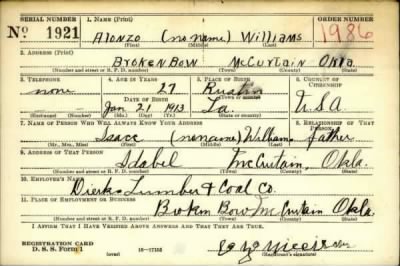 SERIAL NUMBER 1. NAME (Print) ORDER NUMBER
No 1921 Alonzo (no name) Williams 1986
(First) (Middle) (Last)
2. ADDRESS (Print)
Broken Bow McCurtain Okla.
(Number and street or R. F. D. number) (Town) (County) (State)
3. TELEPHONE 4. AGE IN YEARS 5. PLACE OF BIRTH 6. COUNTRY OF CITIZENSHIP
none 27 Rustin
DATE OF BIRTH (Town or county)
Jan 21 1913 La. USA
(Exchange) (Number) (Mo.) (Day) (Yr.) (State or country)
7. NAME OF PERSON WHO WILL ALWAYS KNOW YOUR ADDRESS 8. RELATIONSHIP OF THAT PERSON
Isaac (no name) Williams father
(Mr., Mrs., Miss) (First) (Middle) (Last)
9. ADDRESS OF THAT PERSON
Idabel McCurtain, Okla.
(Number and street or R. F. D. number) (Town) (County) (State)
10. EMPLOYER'S NAME
Dierks Lumber & Coal Co.
11. PLACE OF EMPLOYMENT OR BUSINESS
Broken Bow McCurtain Okla.
(Number and street or R. F. D. number) (Town) (County) (State)
I AFFIRM THAT I HAVE VERIFIED ABOVE ANSWERS AND THAT THEY ARE TRUE.
REGISTRATION CARD
D. S. S. Form 1 (over) (Registrant's signature)